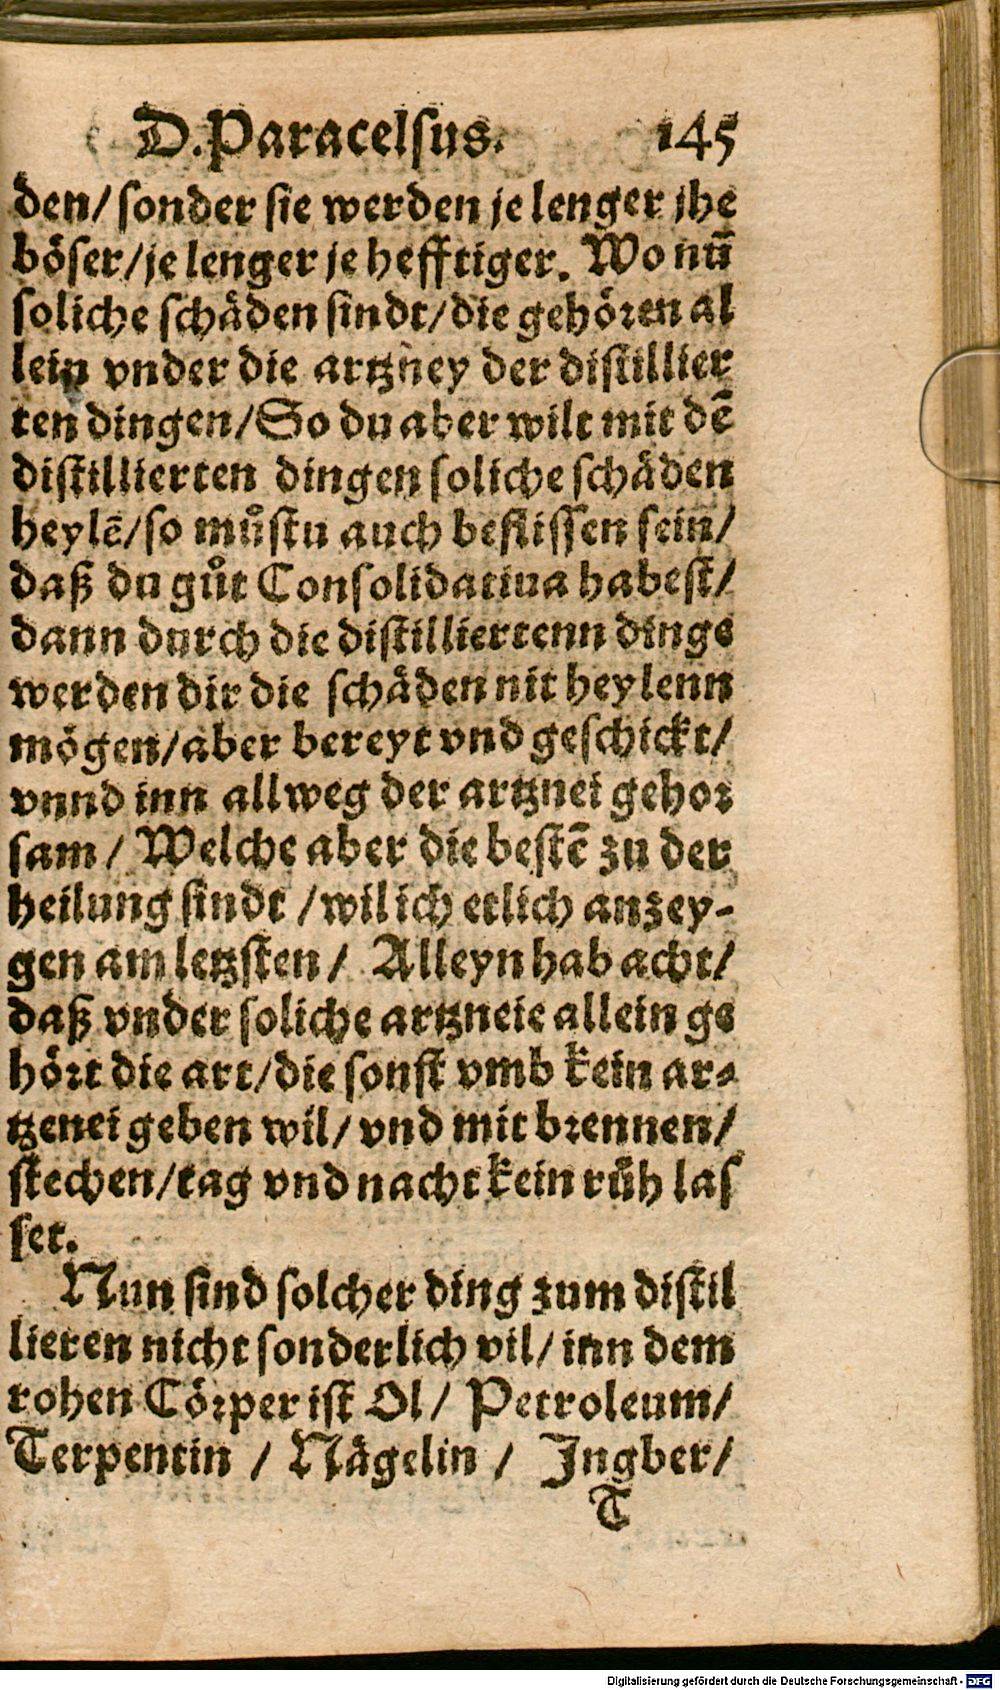 D. Paracelsus. 145
den/ sonder sie werden je lenger jhe
böser/ je lenger je hefftiger. Wo nū
soliche schäden sindt/ die gehören al
lein vnder die artzney der distillier
ten dingen/ So du aber wilt mit dē
distillierten dingen soliche schäden
heylē/ so můstu auch beflissen sein/
daß du gůt Consolidatiua habest/
dann durch die distilliertenn dinge
werden dir die schäden nit heylenn
mögen/ aber bereyt vnd geschickt/
vnnd inn allweg der artznei gehor
sam/ Welche aber die bestē zu der
heilung sindt / wil ich etlich anzey-
gen am letzsten/ Alleyn hab acht/
daß vnder soliche artzneie allein ge
hört die art/ die sonst vmb kein ar-
tzenei geben wil/ vnd mit brennen/
stechen/ tag vnd nacht kein růh las
set.
Nun sind solcher ding zum distil
lieren nicht sonderlich vil/ inn dem
rohen Cörper ist Ol/ Petroleum/
Terpentin / Nägelin / Ingber/
T
Digitalisierung gefördert durch die Deutsche Forschungsgemeinschaft - DFG